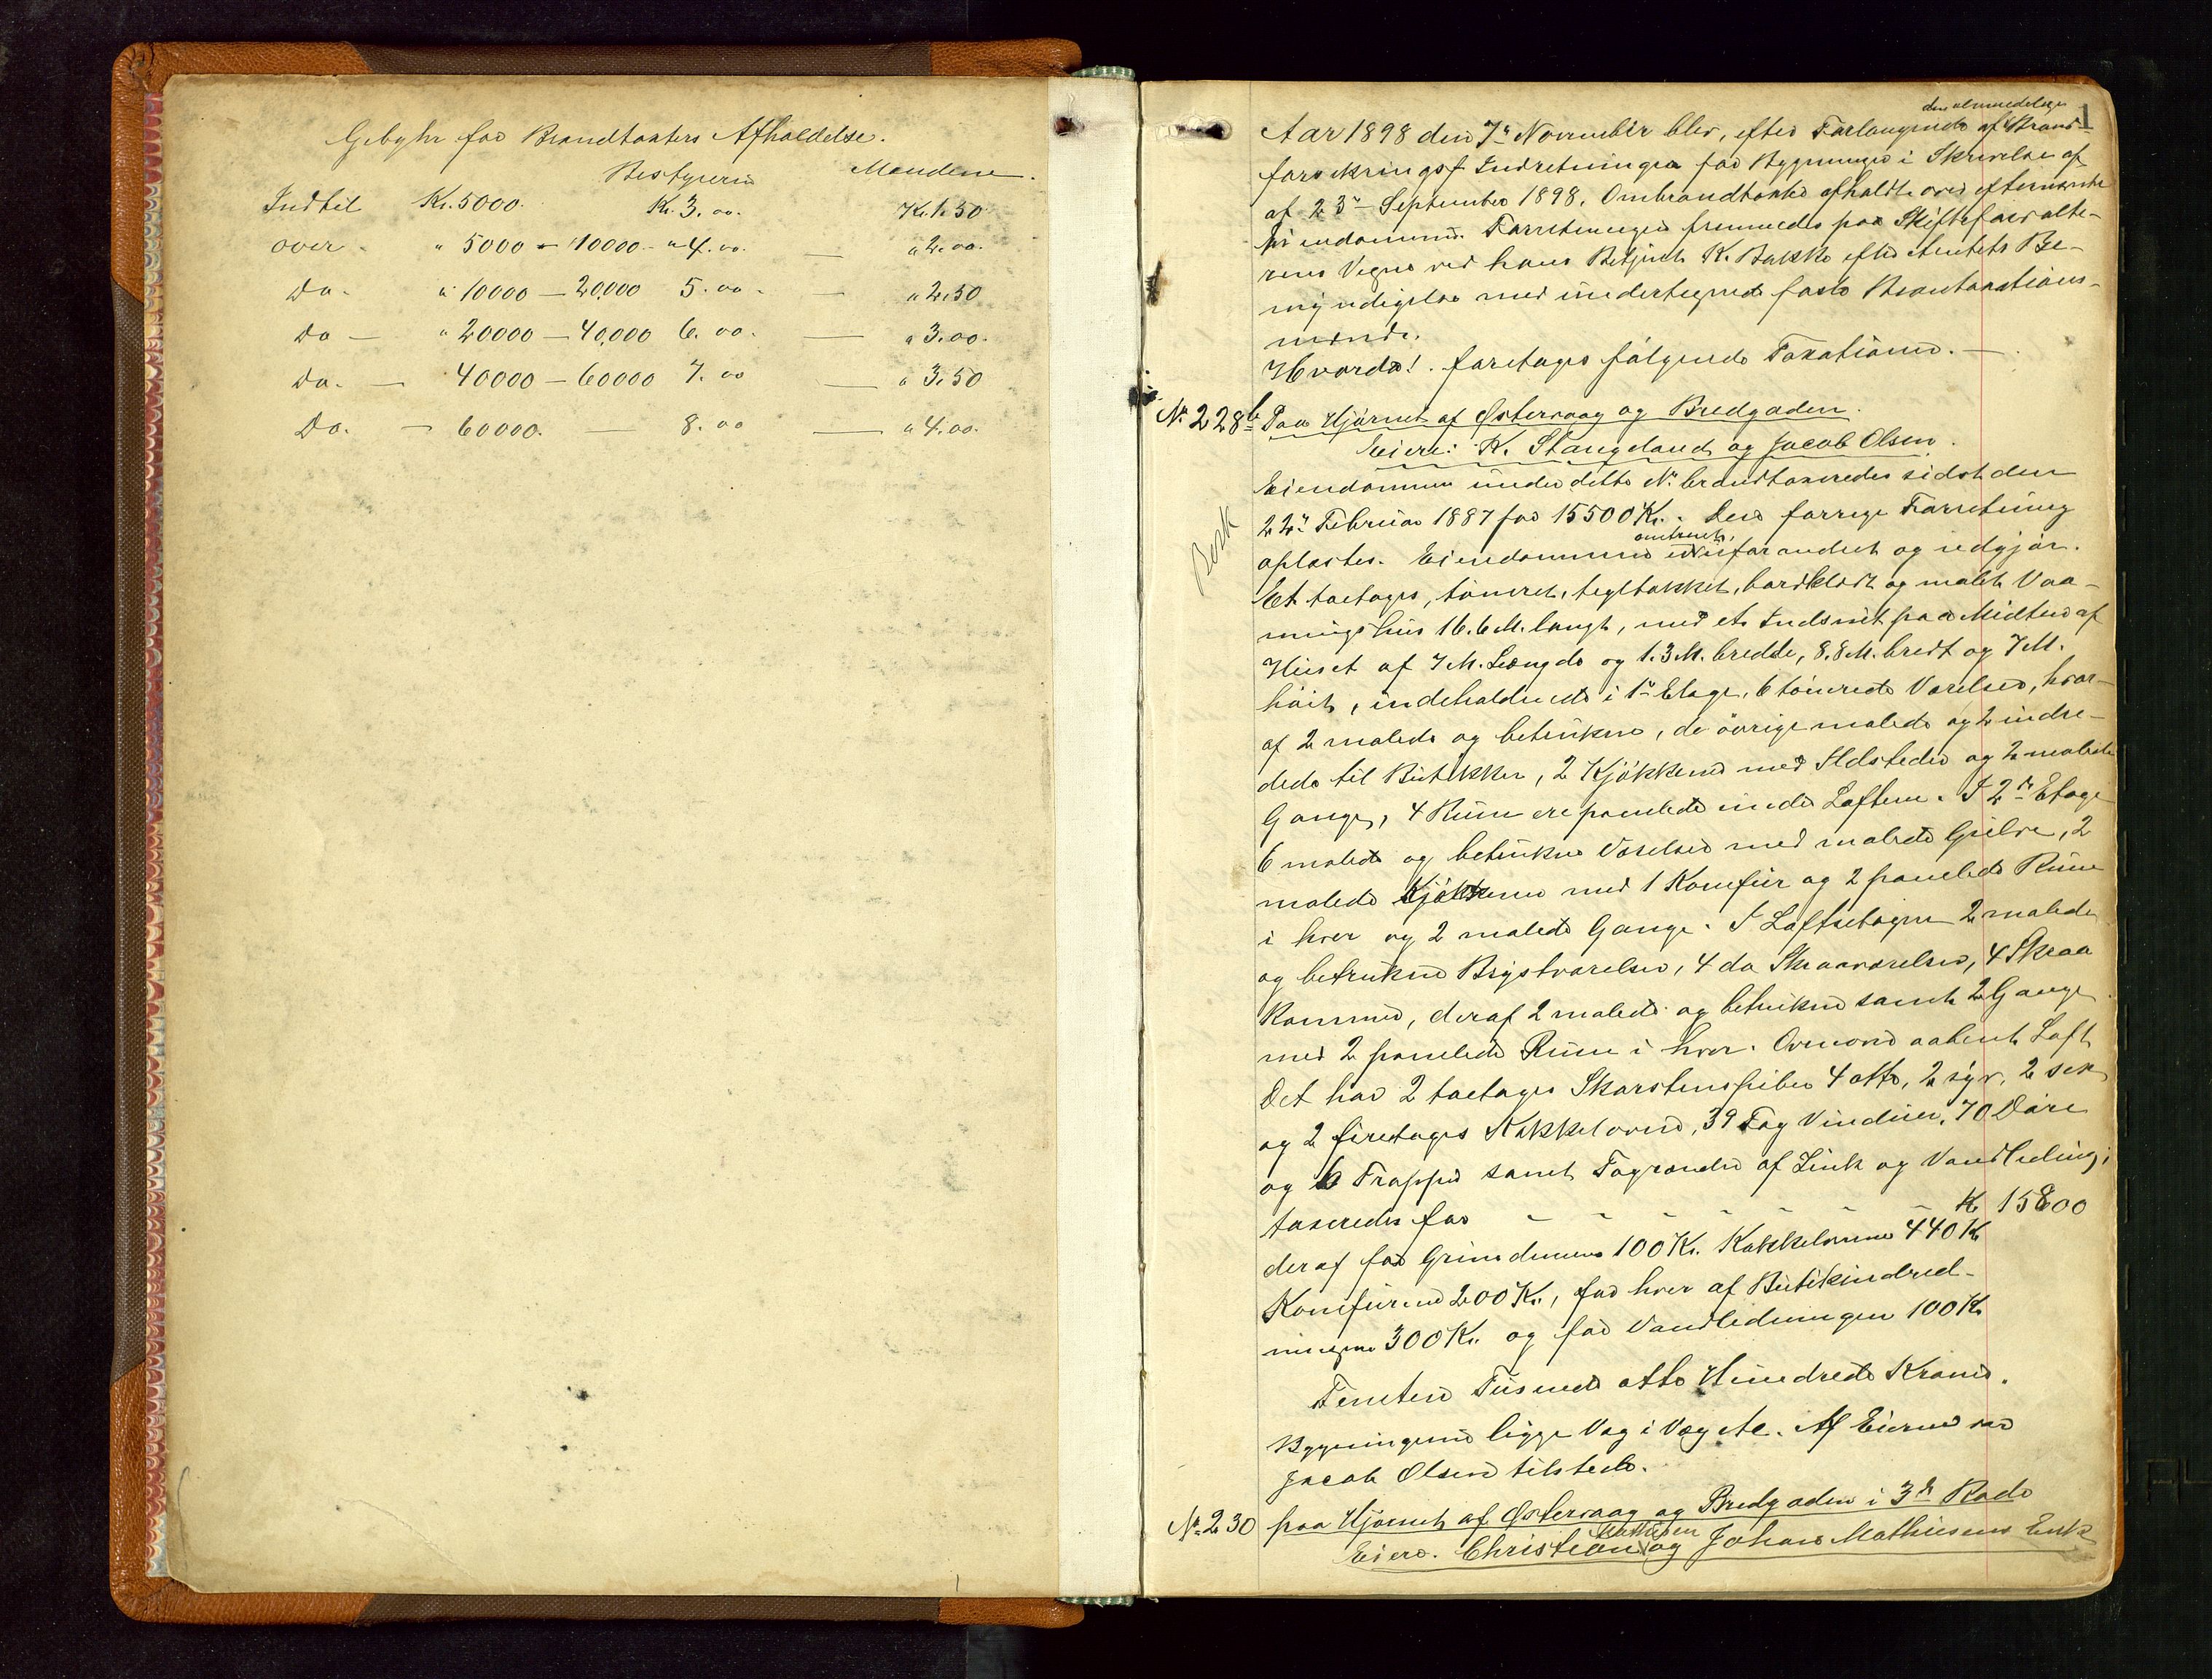 Gebyhr for Brandtaxters Afholdelse.
Bestyreren Mændene.
Indtil Kr. 5000. Kr. 3.00. Kr. 1.50
over - " 5000 - 10000 - " 4.00. — " 2.00.
Do - " 10000 — 20,000 5.00. — " 2.50
Do — " 20000 — 40,000 6.00. — " 3.00.
Do. — 40000 — 60000 7.00 — " 3.50
Do. — 60000. — 8.00 — " 4.00.
1
den almindelige
Aar 1898 den 7de November blev, efter Forlangende af Brand-
forsikringsf Indretningen for Bygninger i Skrivelse af
af 23de September 1898, Ombrandtaxt afholdt over efternævnte
Eiendomme. Forretningen fremmedes paa Skifteforvalte-
rens Vegne ved hans Betjent K. Bakke efter Amtets Be-
myndigelse med undertegnede faste Brantaxations-
mænd.
Hvorda! foretages følgende Taxationer. —
No. 228b Paa Hjørnet af Østervaag og Bredgaden.
Eiere: K. Stangeland og Jacob Olsen.
Eiendommen under dette No. brandtaxeredes sidst den
22de Februar 1887 for 15500 Kr. Den forrige Forretning
Besk
omtrent
oplæstes. Eiendommen uforandret og udgjør.
Et toetages, tømret, tegltækket, bordklædt og malet Vaa-
ningshus 16.6 M. langt, med et Indsnit paa Midten af
Huset af 7 M. Længde og 1.3 M. bredde, 8.8 M. bredt og 7 M.
høit, indeholdende i 1ste Etage, 6 tømrede Værelser, hvor-
af 2 malede og betrukne, de øvrige malede og 2 indre-
dede til Butikker, 2 Kjøkkener med Ildsteder og 2 malede
Gange, 4 Rum ere panelede under Loftene. I 2den Etage
6 malede og betrukne Værelser med malede Gulve, 2
malede Kjøkkener med 1 Komfur og 2 panelede Rum
i hver og 2 malede Gange. I Loftsetagen 2 malede
og betrukne Brystværelser, 4 do Skraaværelser, 4 Skraa
Kammer, deraf 2 malede og betrukne samt 2 Gange
med 2 panelede Rum i hver. Ovenover aabent Loft
Det har 2 toetages Skorstenspiber 4 otte, 2 syv, 2 sex
og 2 firetages Kakkelovne, 39 Fag Vinduer, 70 Døre
og 6 Trapper samt Tagrender af Zink og Vandledning;
taxeredes for - - - - - - - Kr 15800
deraf for Grundmuren 100 Kr. Kakkelovne 440 Kr
Komfurene 200 Kr., for hver af Butikindred-
ningerne 300 Kr. og for Vandledningen 100 Kr
Femten Tusinde otte Hundrede Kroner.
Bygningerne ligge Væg i Væg &c. Af Eierne var
Jacob Olsen tilstede.
No. 230 paa Hjørnet af Østervaag og Bredgaden i 3de Rode
Mathiesen
Eiere. Christian og Johan Mathiesens Enke